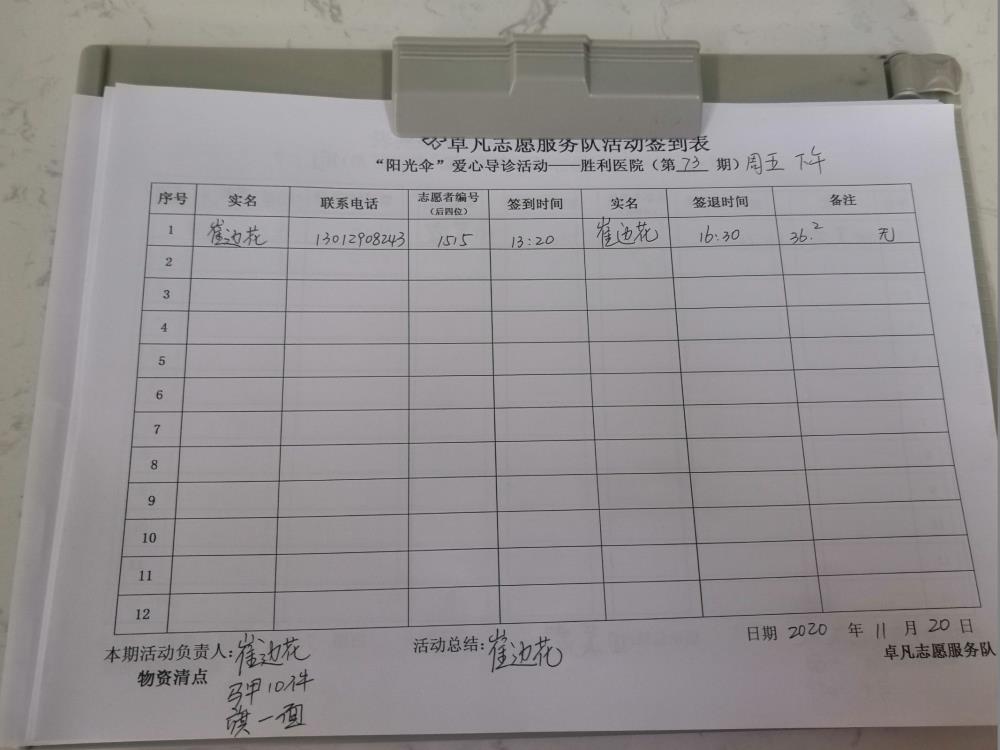 卓凡志愿服务队活动签到表
“阳光伞”爱心导诊活动——胜利医院(第 73 期)周五 下午
序号 实名 联系电话 志愿者编号(后四位) 签到时间 实名 签退时间 备注
1 崔边花 13012908243 1515 13:20 崔边花 16:30 36.2 无
2
3
4
5
6
7
8
9
10
11
12
日期 2020 年 11 月 20 日
本期活动负责人:崔边花 活动总结:崔边花
卓凡志愿服务队
物资清点
马甲10件
旗一面